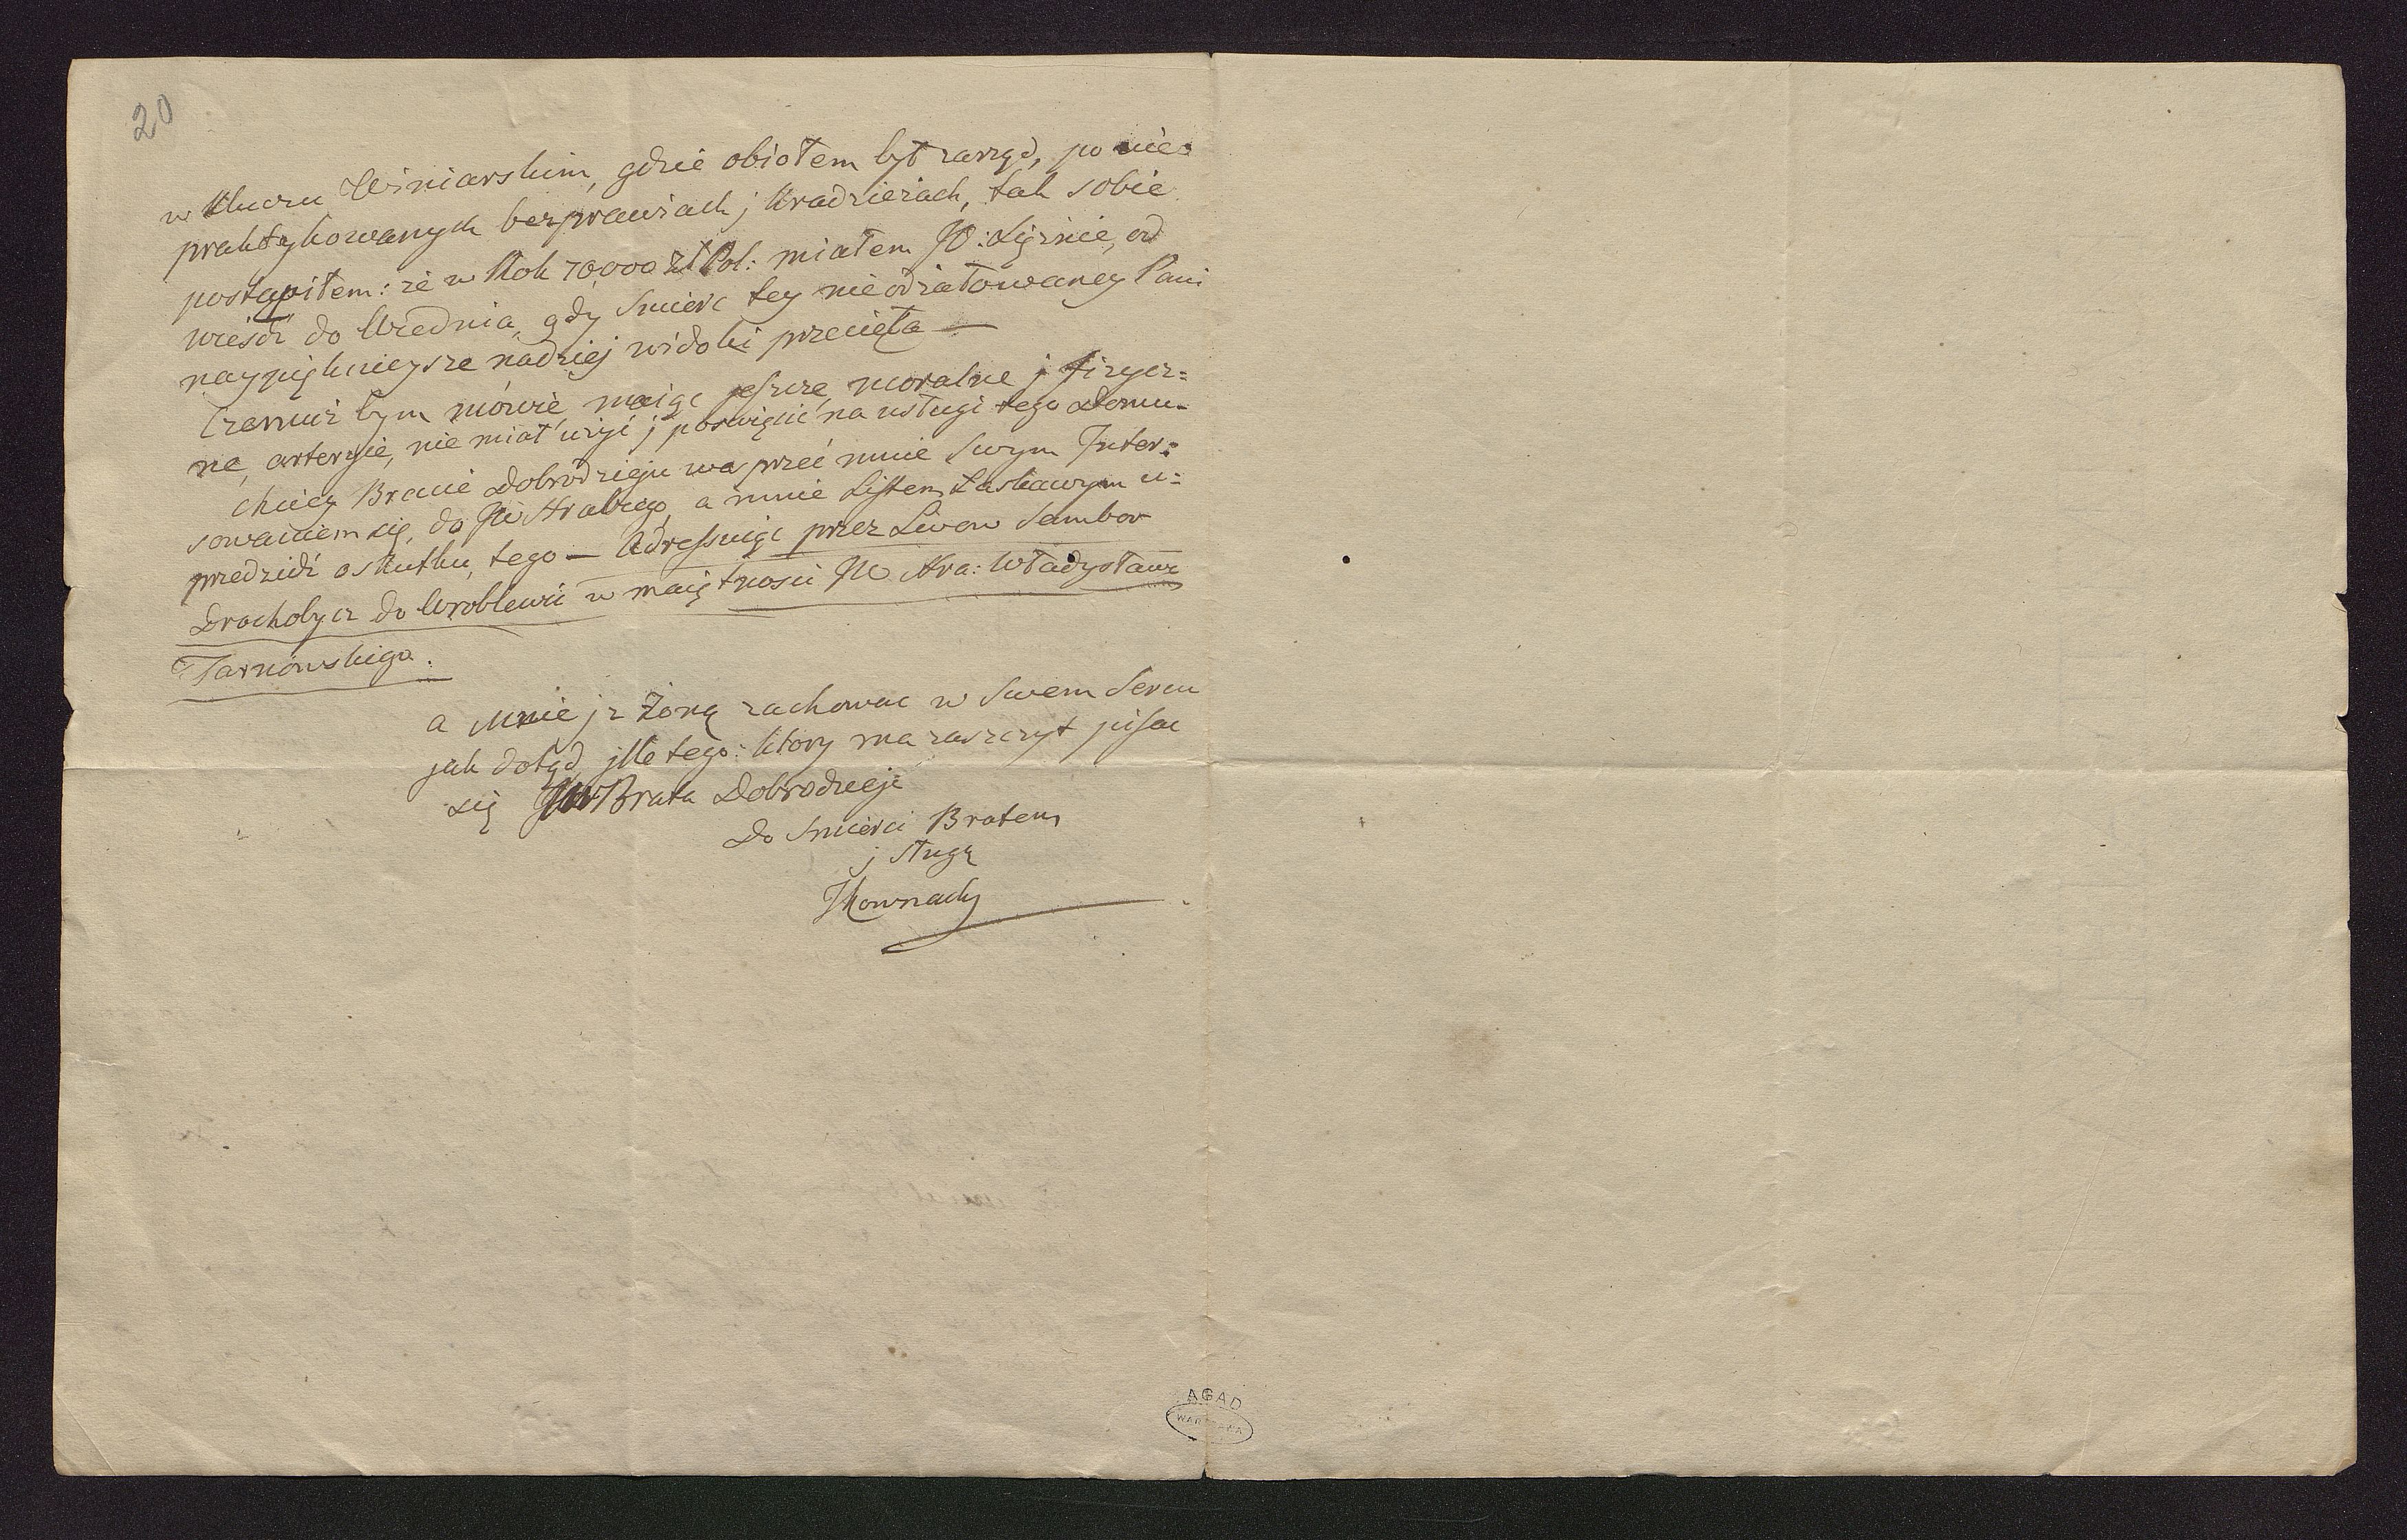 20
w Kluczu Winiarskim, gdzie obiołem był zarząd, po nie=
praktykowanych bezprawiach j Kradzieżach, tak sobie
postąpiłem: że w Rok 70,000 zł Pol: miałem JO: Xiężnie, od
wieść do Wiednia, gdy Smierc tey nieodżałowaney Pani
naypięknieysze nadziej widoki przecięła —
Czemuż bym mówie, maiąc jeszcze, moralne j fizycz=
ne, arteryie, nie miał użyć j poswięcić na usługi tego Domu.
chciey Bracie Dobrodzieju wesprzeć mnie Swym Inter=
sowaniem się, do JW Hrabiego, a mnie Listem Łaskawym u=
przedzić o Skutku, tego — Adressuiąc przez Lwow Sambor
Drochobycz do Wroblewic w maiętnosci JW Hra: Władysława
Tarnowskiego.
a Mnie j z Żoną zachowac w Swem Sercu
jak dotąd, jlle tego: Ktory ma zaszczyt pisac
się JW Brata Dobrodzieja
Do Smierci Bratem
j Sługą
JKownacky
AGAD
WARSZAWA